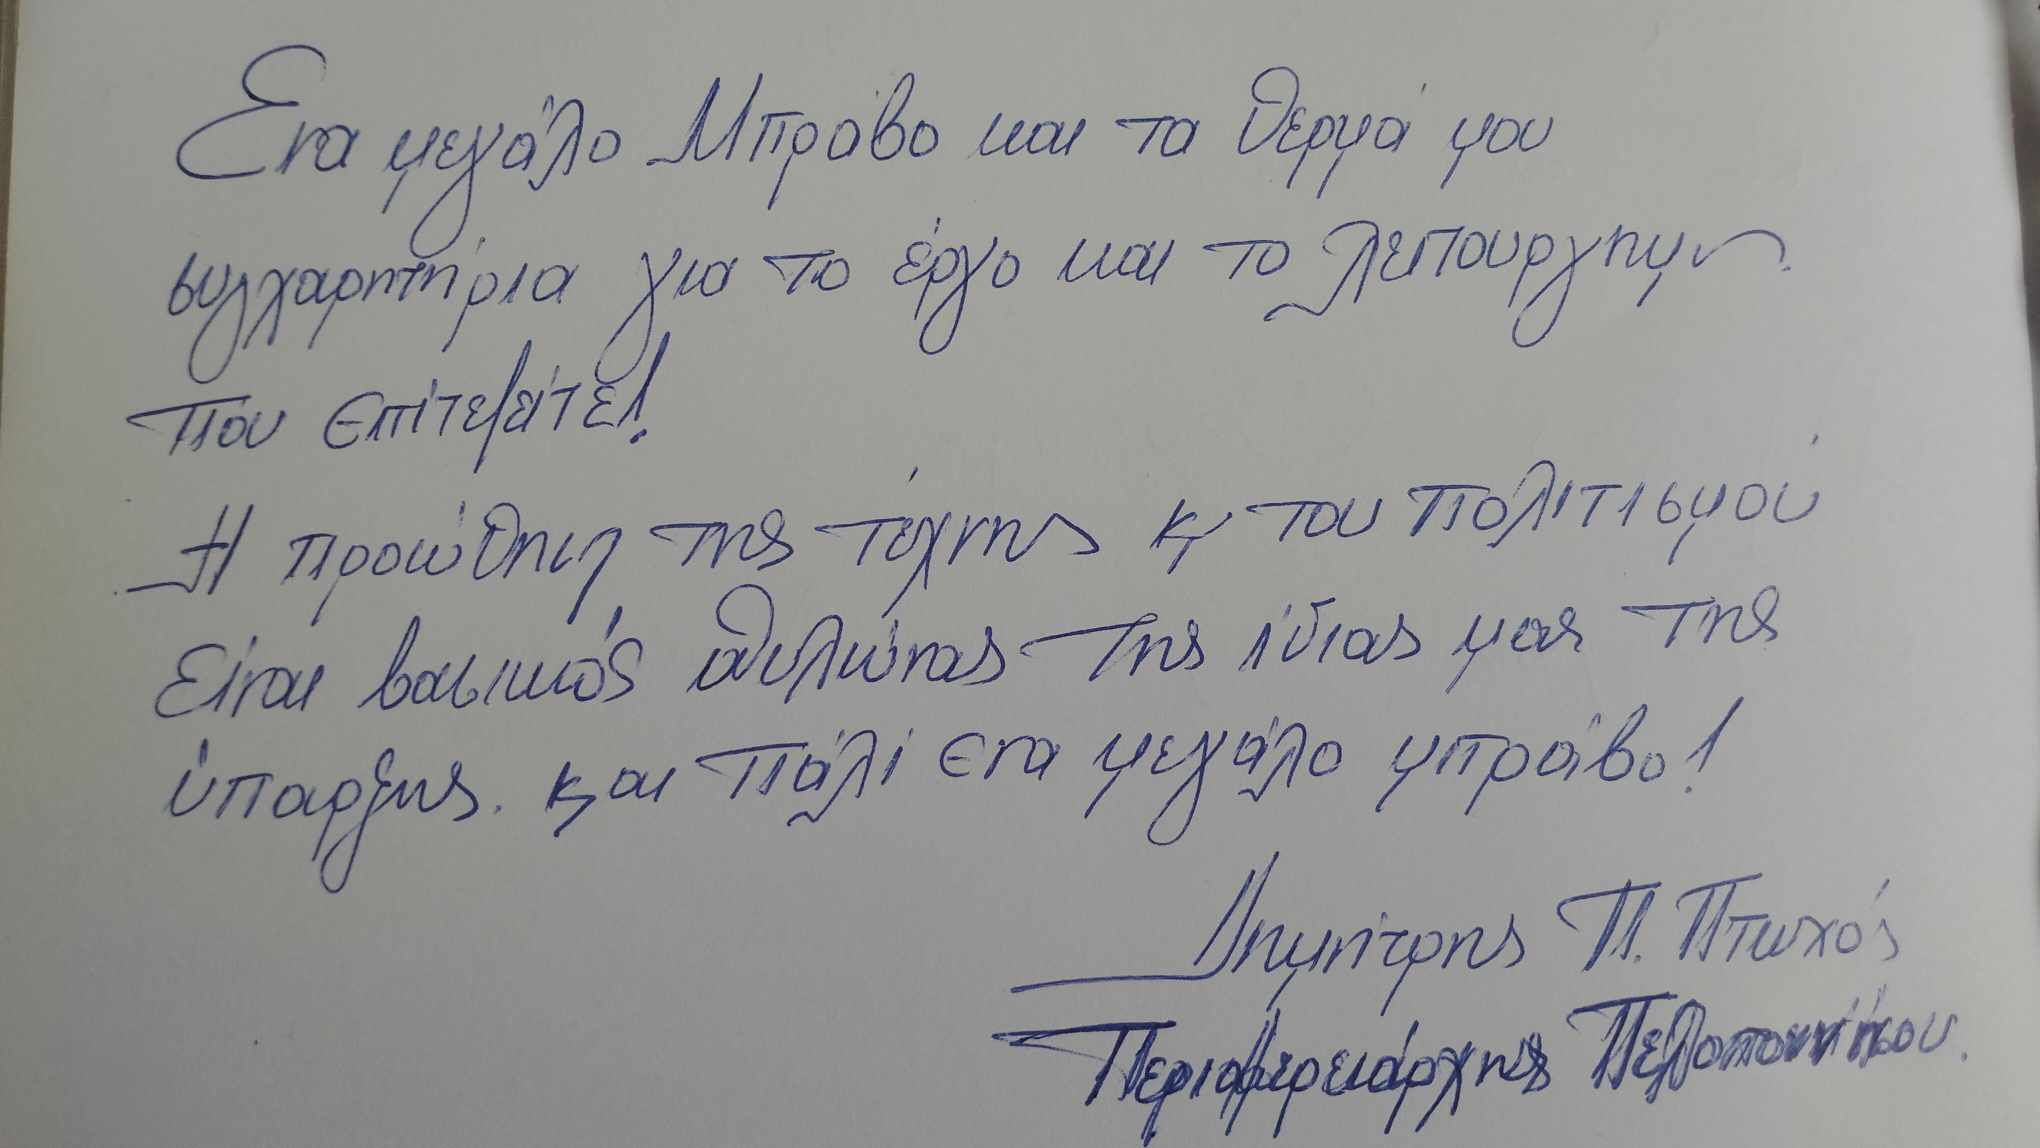 Ενα μεγάλο Μπράβο και τα θερμά μου
συγχαρητήρια για το έργο και το λειτούργημα
που επιτελείτε!
Η προώθηση της τέχνης κ του πολιτισμού
είναι βασικός πυλώνας της ίδιας μας της
ύπαρξης. και πάλι ενα μεγάλο μπράβο!
Δημήτρης Π. Πτωχός
Περιφερειάρχης Πελοποννήσου.